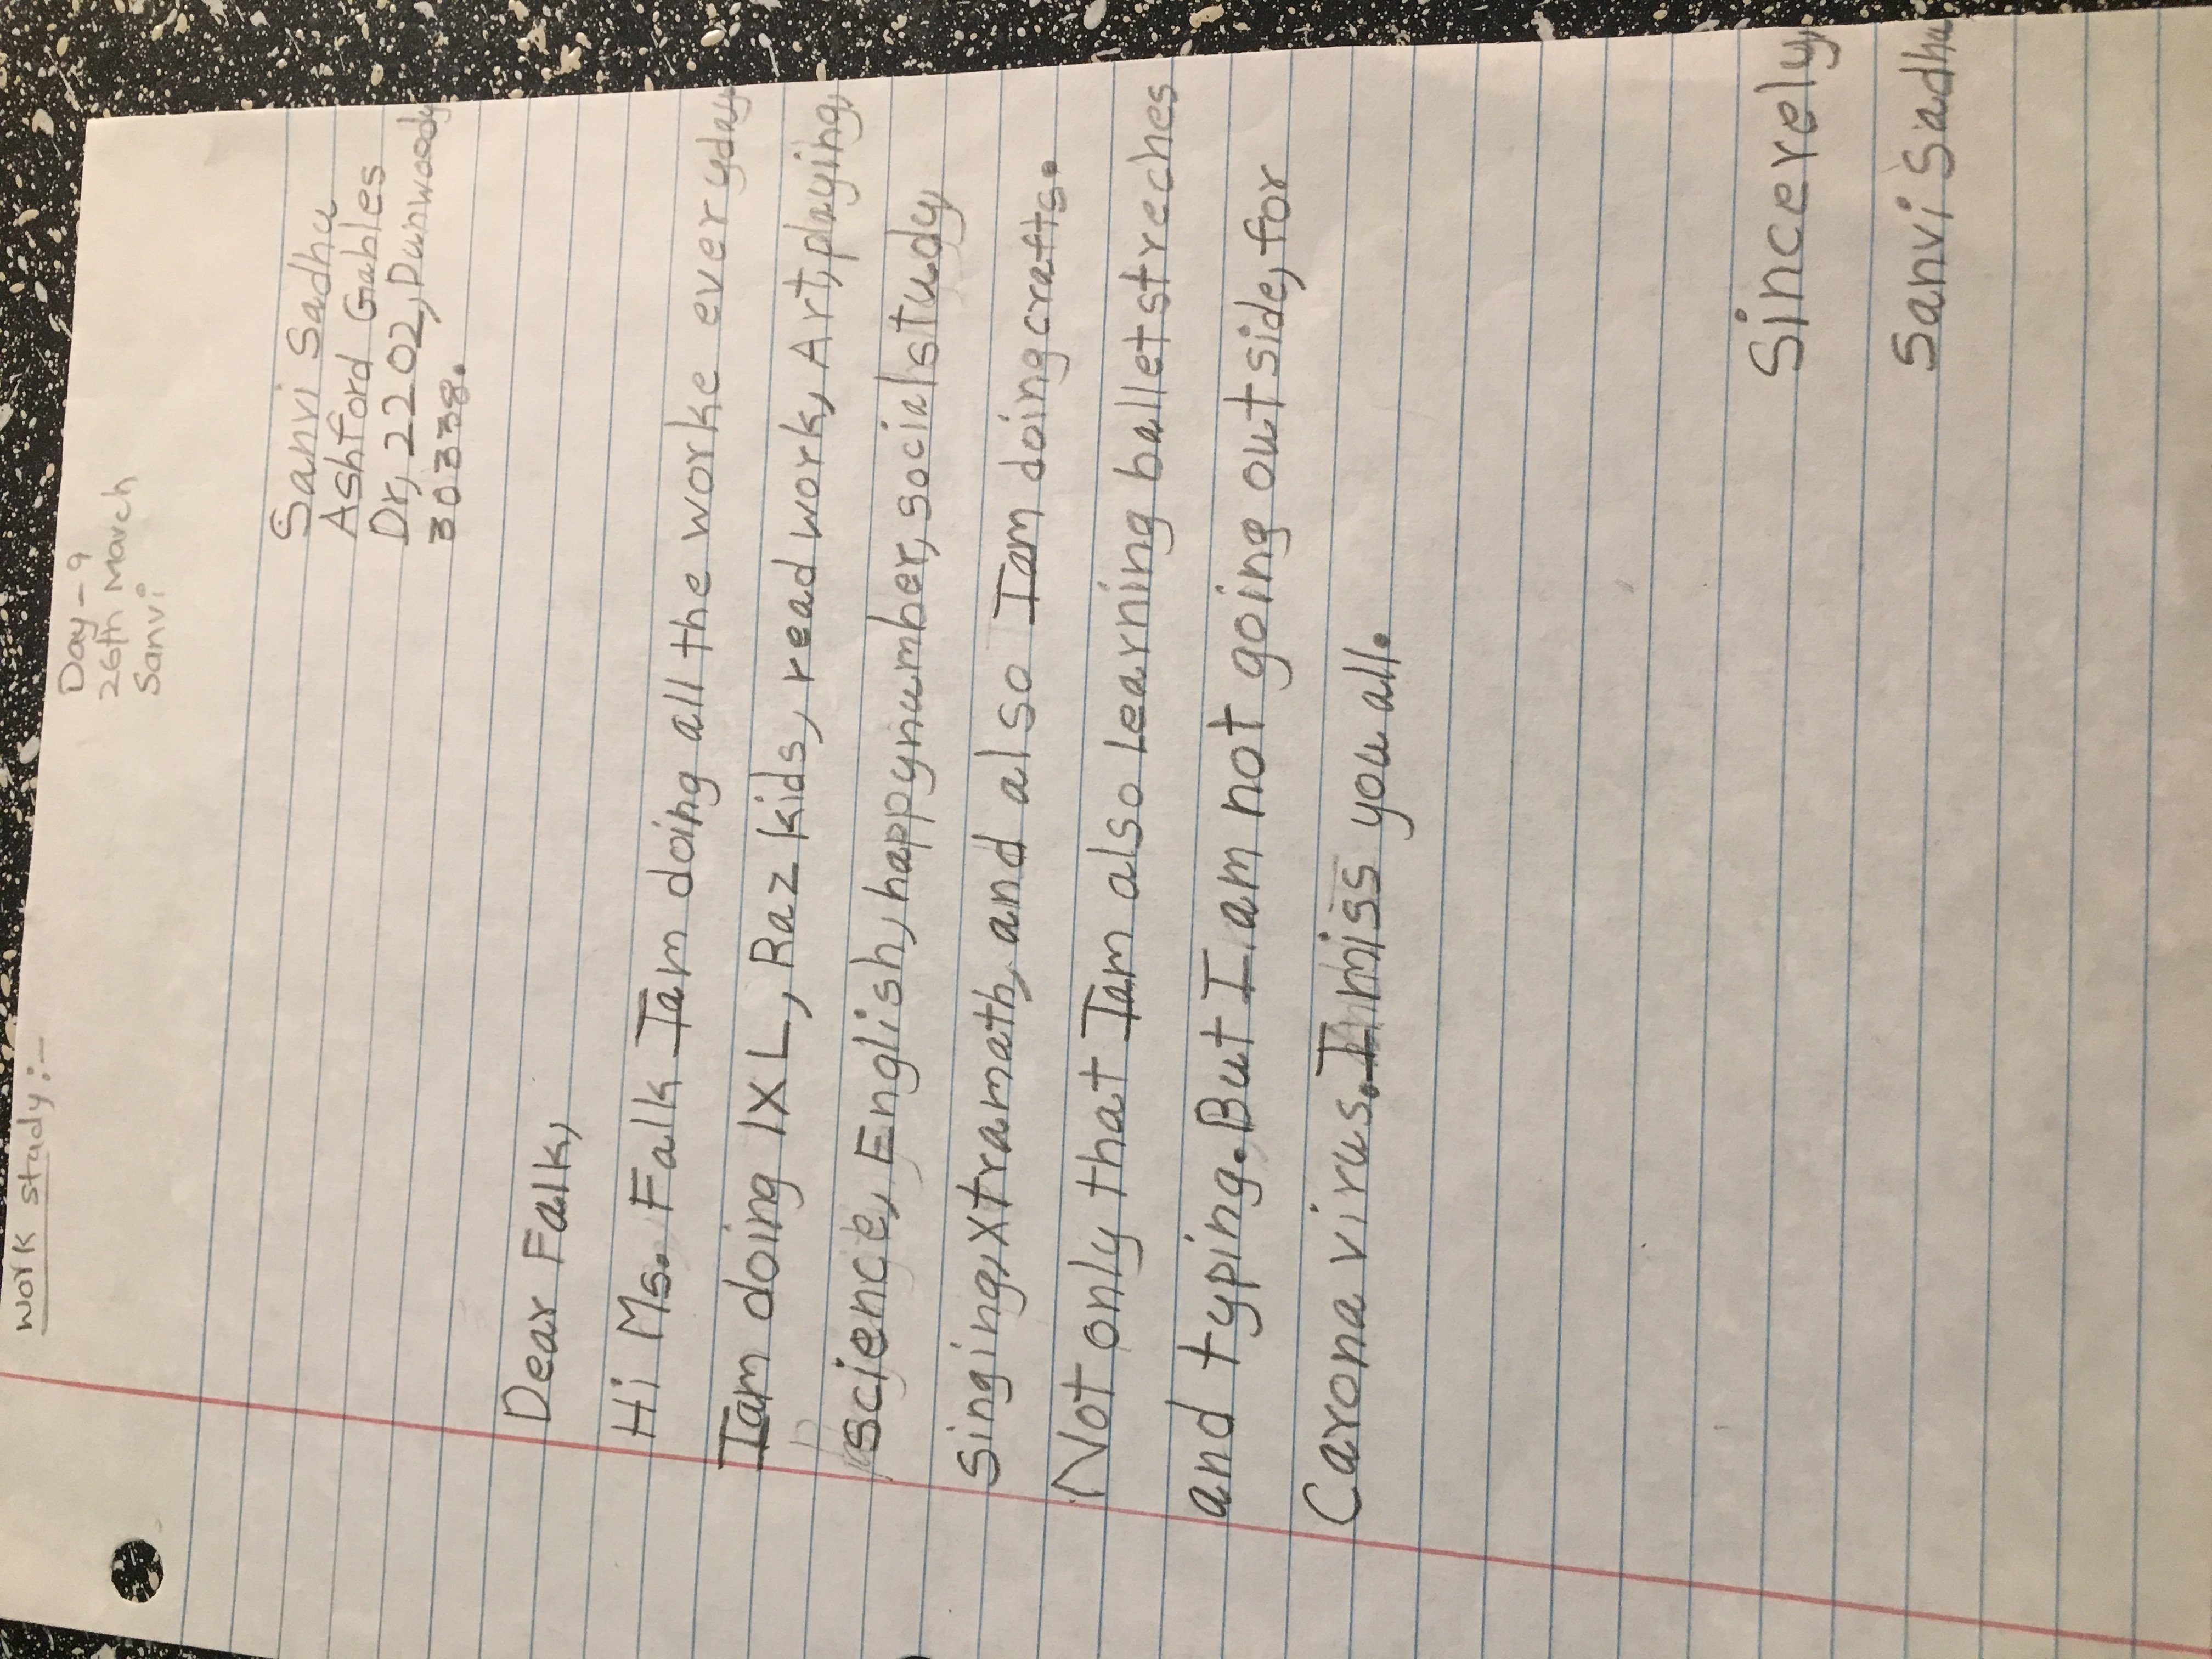 work study:-
Day - 9
26th March
Sanvi
Sanvi Sadhu
Ashford Gables
Dr, 2202, Dunwoody
30338.
Dear Falk,
Hi Ms. Falk Iam doing all the worke everyday.
Iam doing IXL, Raz kids, read work, Art, playing,
science, English, happynumber, social study
singing, Xtramath, and also Iam doing crafts.
Not only that Iam also learning ballet streches
and typing. But I am not going outside, for
Carona virus. I miss you all.
Sincerely,
Sanvi Sadhu